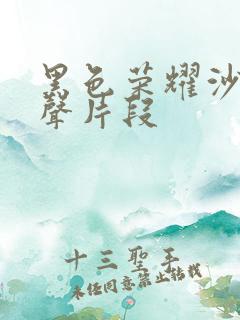 黑色荣耀沙
聲片段
十三聖手
未经同意禁止转载